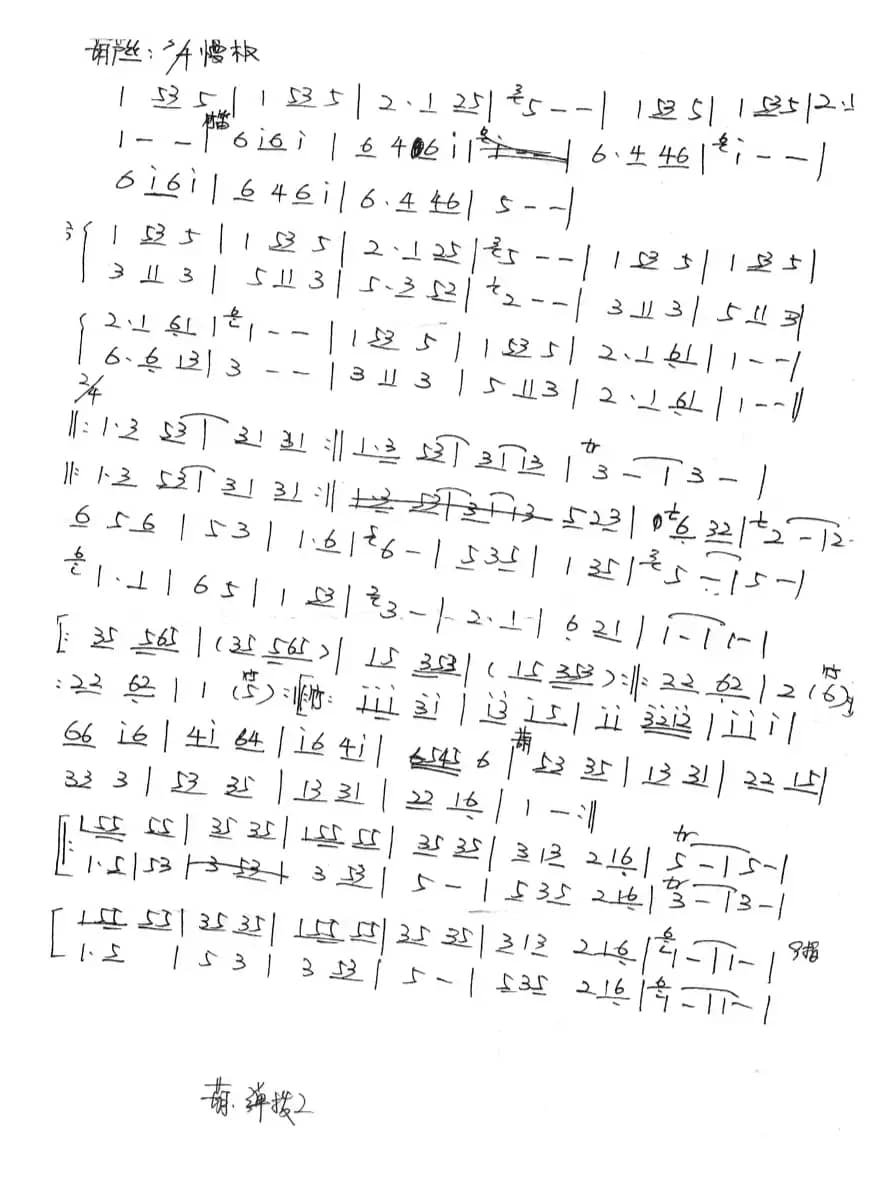 葫芦丝: 3/4 慢板
1 53 5 | 1 53 5 | 2·1 25 | 3/2 5 - - | 1 53 5 | 1 53 5 | 2·1
1 - - | 6 i6 i | 6 4 6 i | 6·4 46 | 6 i - - |
6 i6 i | 6 4 6 i | 6·4 46 | 5 - - |
1 53 5 | 1 53 5 | 2·1 25 | 3/2 5 - - | 1 53 5 | 1 53 5 |
3 11 3 | 5 11 3 | 5·3 52 | 2 - - | 3 11 3 | 5 11 3 |
2·1 61 | 6 1 - - | 1 53 5 | 1 53 5 | 2·1 61 | 1 - - |
6·6 13 | 3 - - | 3 11 3 | 5 11 3 | 2·1 61 | 1 - - ||
2/4
||: 1·3 53 | 31 31 :|| 1·3 53 | 31 13 | tr 3 - | 3 - |
||: 1·3 53 | 31 31 :|| 5 23 | 6 32 | 2 - | 2·
6 56 | 5 3 | 1·6 | 6 - | 5 35 | 1 35 | 3/2 5 - | 5 - |
6 1·1 | 6 5 | 1 53 | 3/2 3 - | 2·1 | 6 21 | 1 - | 1 - |
[: 35 565 | (35 565) | 15 353 | (15 353) :||: 22 62 | 2 (竹 6) :||
: 22 62 | 1 (竹 5) :||: 竹: iii 3i | i3 i5 | ii 32i2 | ii i |
66 i6 | 4i 64 | i6 4i | 6545 6 | 葫 53 35 | 13 31 | 22 15 |
33 3 | 53 35 | 13 31 | 22 16 | 1 - :||
[||: 155 55 | 35 35 | 155 55 | 35 35 | 3 13 216 | tr 5 - | 5 - |
1·5 | 53 | 3 53 | 5 - | 5 35 216 | tr 3 - | 3 - |
[ 155 55 | 35 35 | 155 55 | 35 35 | 3 13 216 | 6 1 - | 1 - |
1·5 | 5 3 | 3 53 | 5 - | 535 216 | 6 1 - | 1 - |
葫·弹拨2